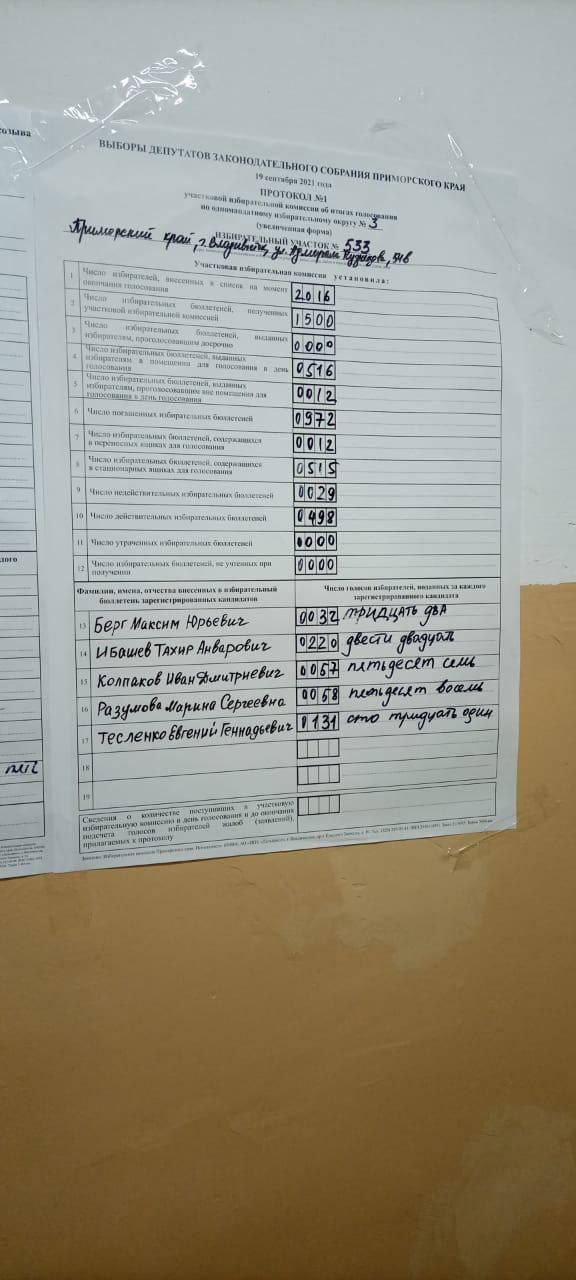 созыва
ВЫБОРЫ ДЕПУТАТОВ ЗАКОНОДАТЕЛЬНОГО СОБРАНИЯ ПРИМОРСКОГО КРАЯ
19 сентября 2021 года
ПРОТОКОЛ №1
участковой избирательной комиссии об итогах голосования
по одномандатному избирательному округу № 3
(увеличенная форма)
ИЗБИРАТЕЛЬНЫЙ УЧАСТОК № 533
Приморский край, г. Владивосток, ул. Адмирала
Участковая избирательная комиссия установила:
1 Число избирателей, внесенных в список на момент окончания голосования 2016
2 Число избирательных бюллетеней, полученных участковой избирательной комиссией 1500
3 Число избирательных бюллетеней, выданных избирателям, проголосовавшим досрочно 0000
4 Число избирательных бюллетеней, выданных избирателям в помещении для голосования в день голосования 0516
5 Число избирательных бюллетеней, выданных избирателям, проголосовавшим вне помещения для голосования в день голосования 0012
6 Число погашенных избирательных бюллетеней 0972
7 Число избирательных бюллетеней, содержащихся в переносных ящиках для голосования 0012
8 Число избирательных бюллетеней, содержащихся в стационарных ящиках для голосования 0515
9 Число недействительных избирательных бюллетеней 0029
10 Число действительных избирательных бюллетеней 0498
11 Число утраченных избирательных бюллетеней 0000
12 Число избирательных бюллетеней, не учтенных при получении 0000
Фамилии, имена, отчества внесенных в избирательный бюллетень зарегистрированных кандидатов
Число голосов избирателей, поданных за каждого зарегистрированного кандидата
13 Берг Максим Юрьевич 0032 тридцать два
14 Ибашев Тахир Анварович 0220 двести двадцать
15 Колпаков Иван Дмитриевич 0057 пятьдесят семь
16 Разумова Марина Сергеевна 0058 пятьдесят восемь
17 Тесленко Евгений Геннадьевич 0131 сто тридцать один
18
19
Сведения о количестве поступивших в участковую избирательную комиссию в день голосования и до окончания подсчета голосов избирателей жалоб (заявлений), прилагаемых к протоколу